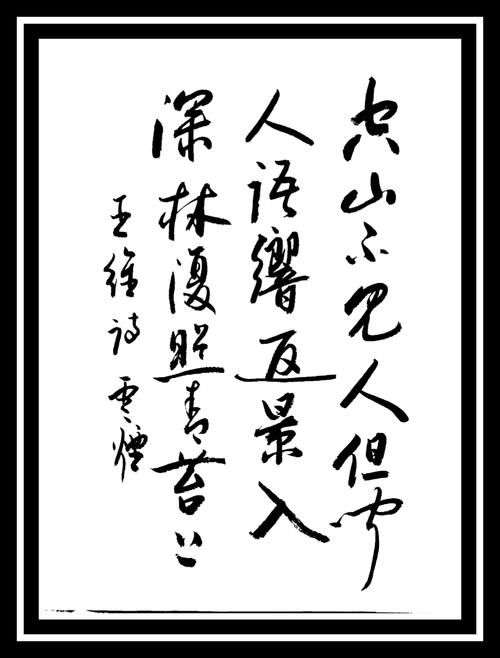 空山不見人但聞
人語響返景入
深林復照青苔上
王維詩 雲煙